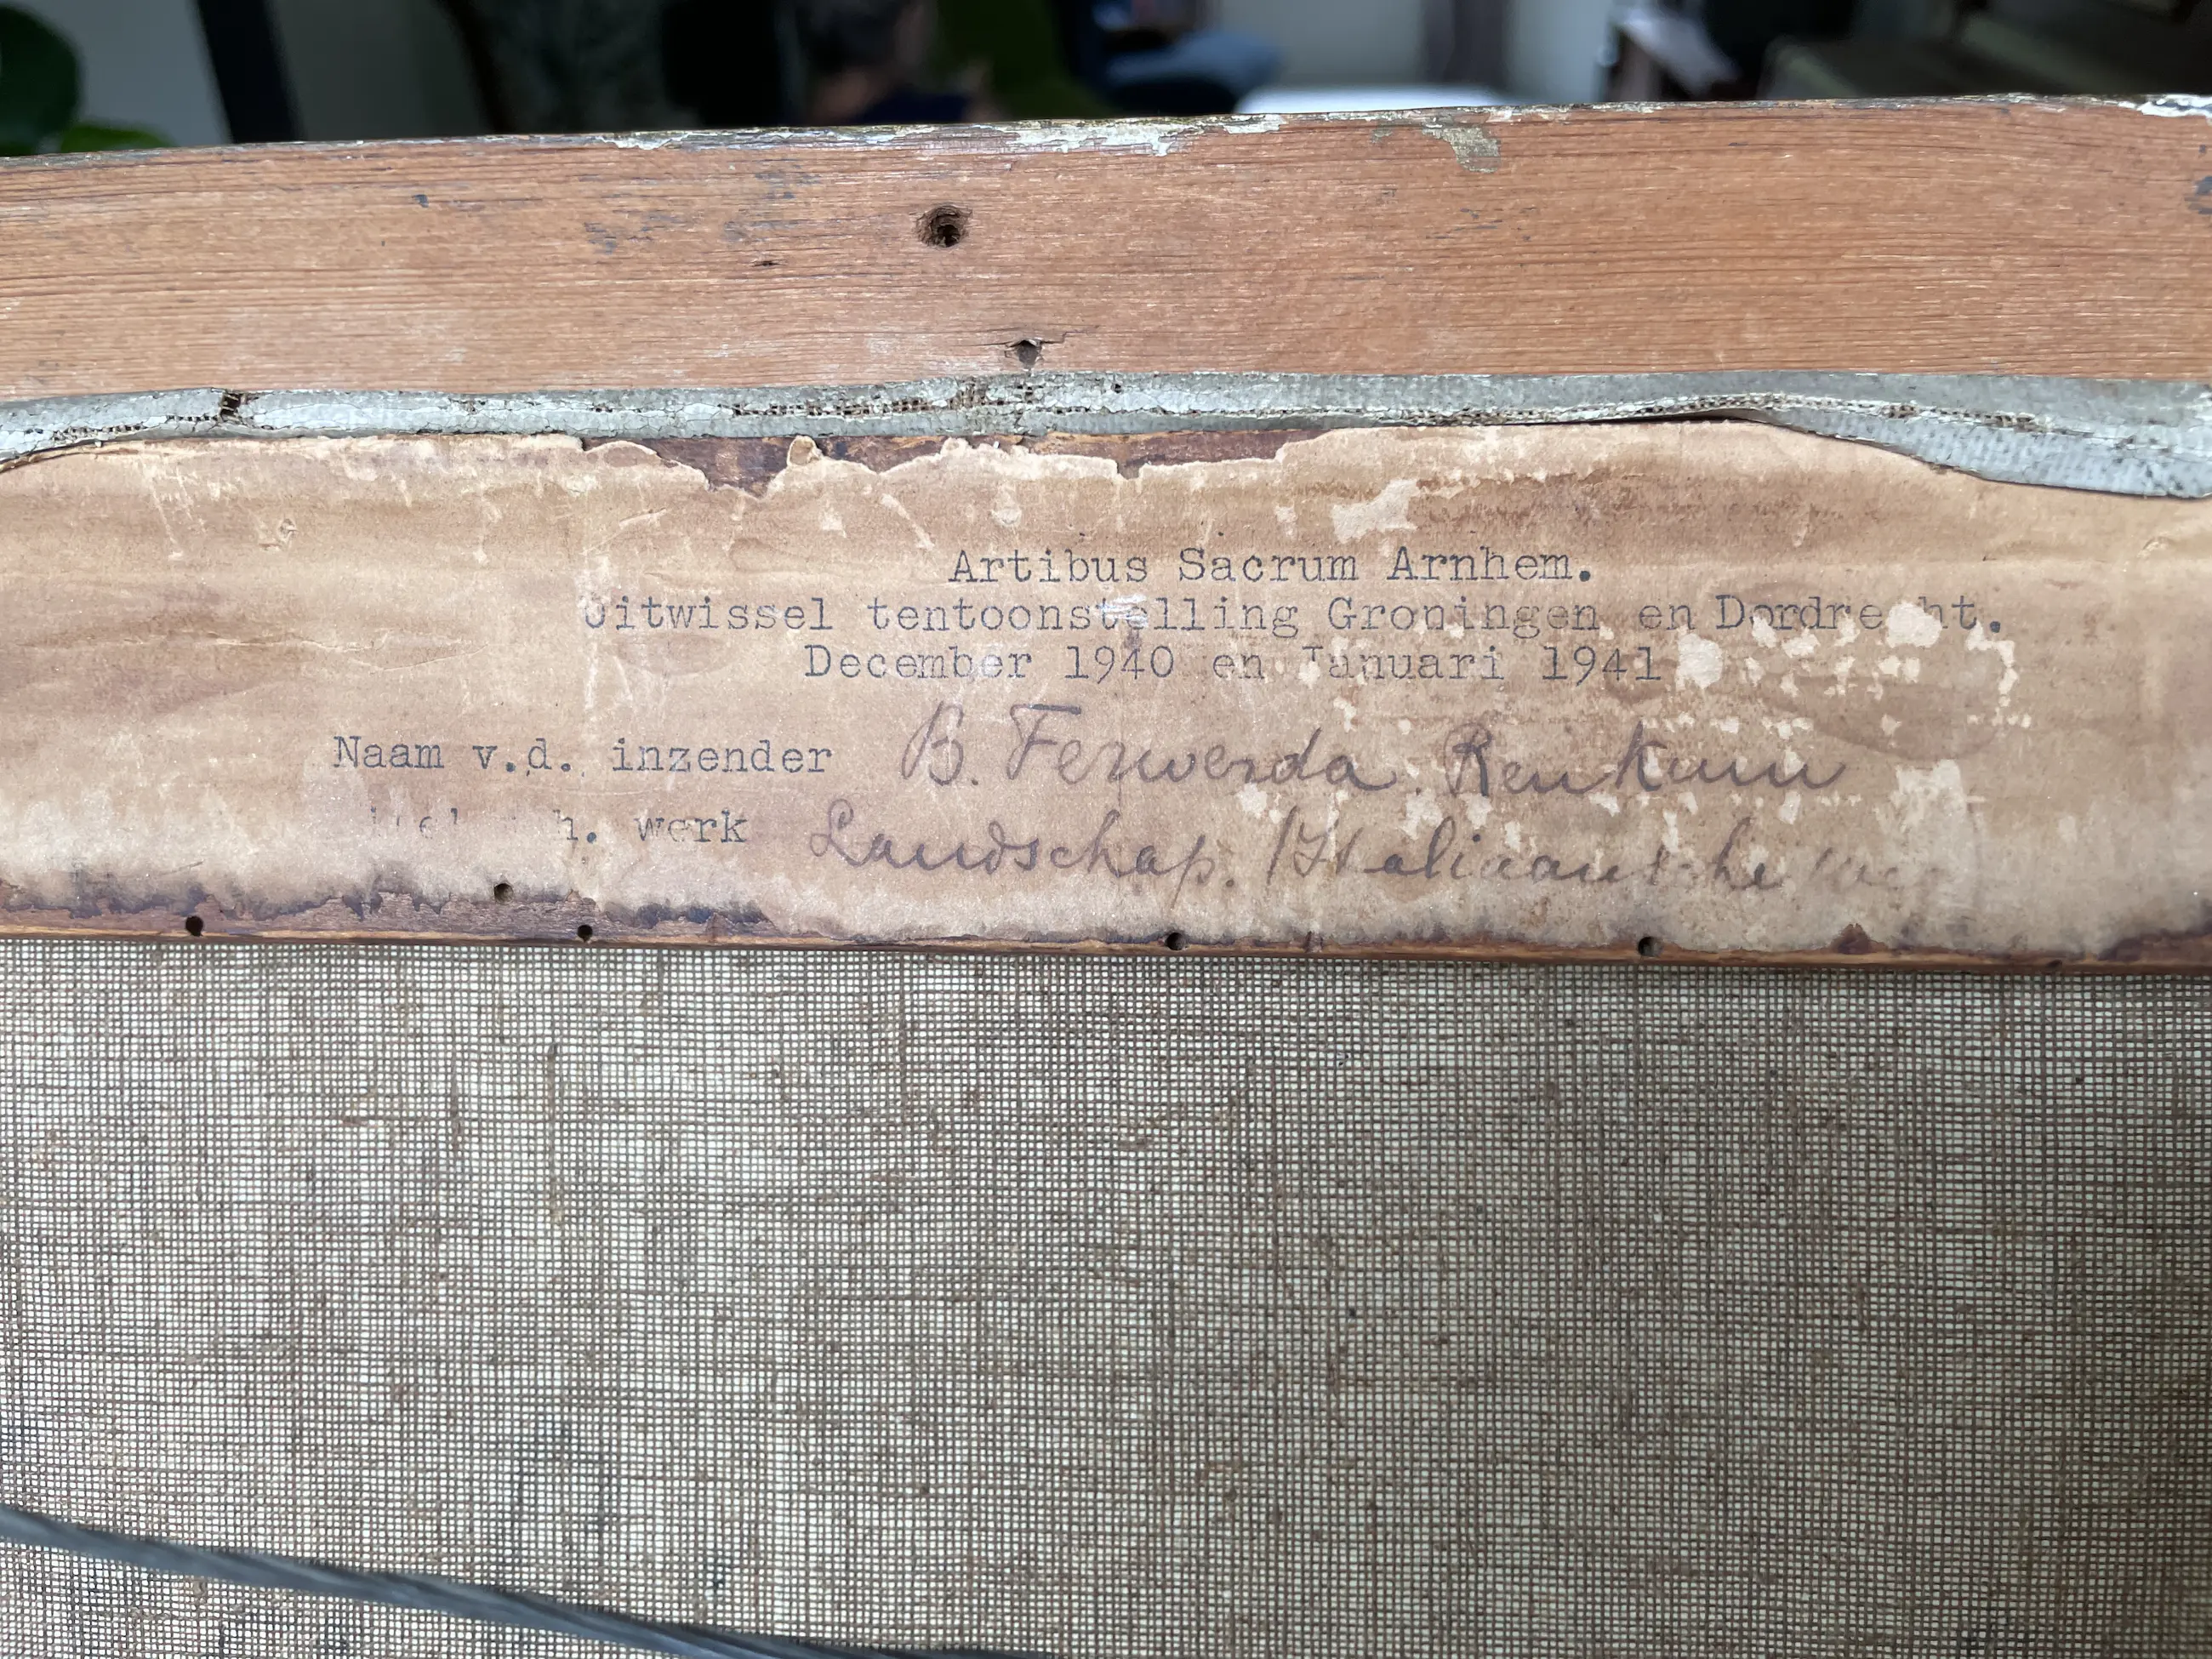 Artibus Sacrum Arnhem.
Uitwissel tentoonstelling Groningen en Dordrecht.
December 1940 en Januari 1941
Naam v.d. inzender B. Ferwerda. Renkum
h. werk Landschap. (Italiaansche